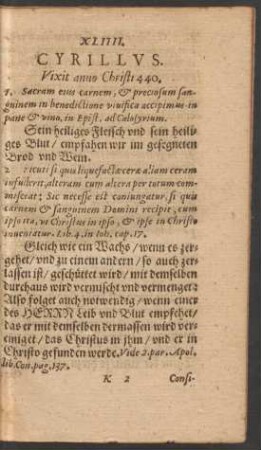 XLIIII.
CYRILLVS.
Vixit anno Christi 440.
1. Sacram eius carnem, & preciosum san-
guinem in benedictione viuifica accipimus in
pane & vino, in Epist. ad Calosyrium.
Sein heiliges Fleisch vnd sein heili-
ges Blut / empfahen wir im gesegneten
Brod vnd Wein.
2. si quis liquefactæ ceræ aliam ceram
infuderit, alteram cum altera per totum com-
misceat; Sic necesse est coniungatur, si quis
carnem & sanguinem Domini recipit, cum
ipso ita, vt Christus in ipso, & ipse in Christo
inueniatur. Lib. 4. in Ioh. cap. 17.
Gleich wie ein Wachs / wenn es zer-
gehet / vnd zu einem andern / so auch zer-
lassen ist / geschüttet wird / mit demselben
durchaus wird vermischt vnd vermenget:
Also folget auch notwendig / wenn einer
des HERRN Leib vnd Blut empfehet /
das er mit demselben dermassen wird ver-
einiget / das Christus in jhm / vnd er in
Christo gefunden werde. Vide 2. par. Apol.
lib. Con. pag. 157.
K 2 Consi-